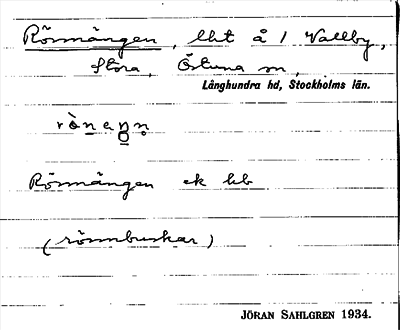 Rönnängen, lht å 1 Vallby,
Stora, Östuna sn,
Långhundra hd, Stockholms län.
Rönnängen ek kb
(rönnbuskar)
JÖRAN SAHLGREN 1934.